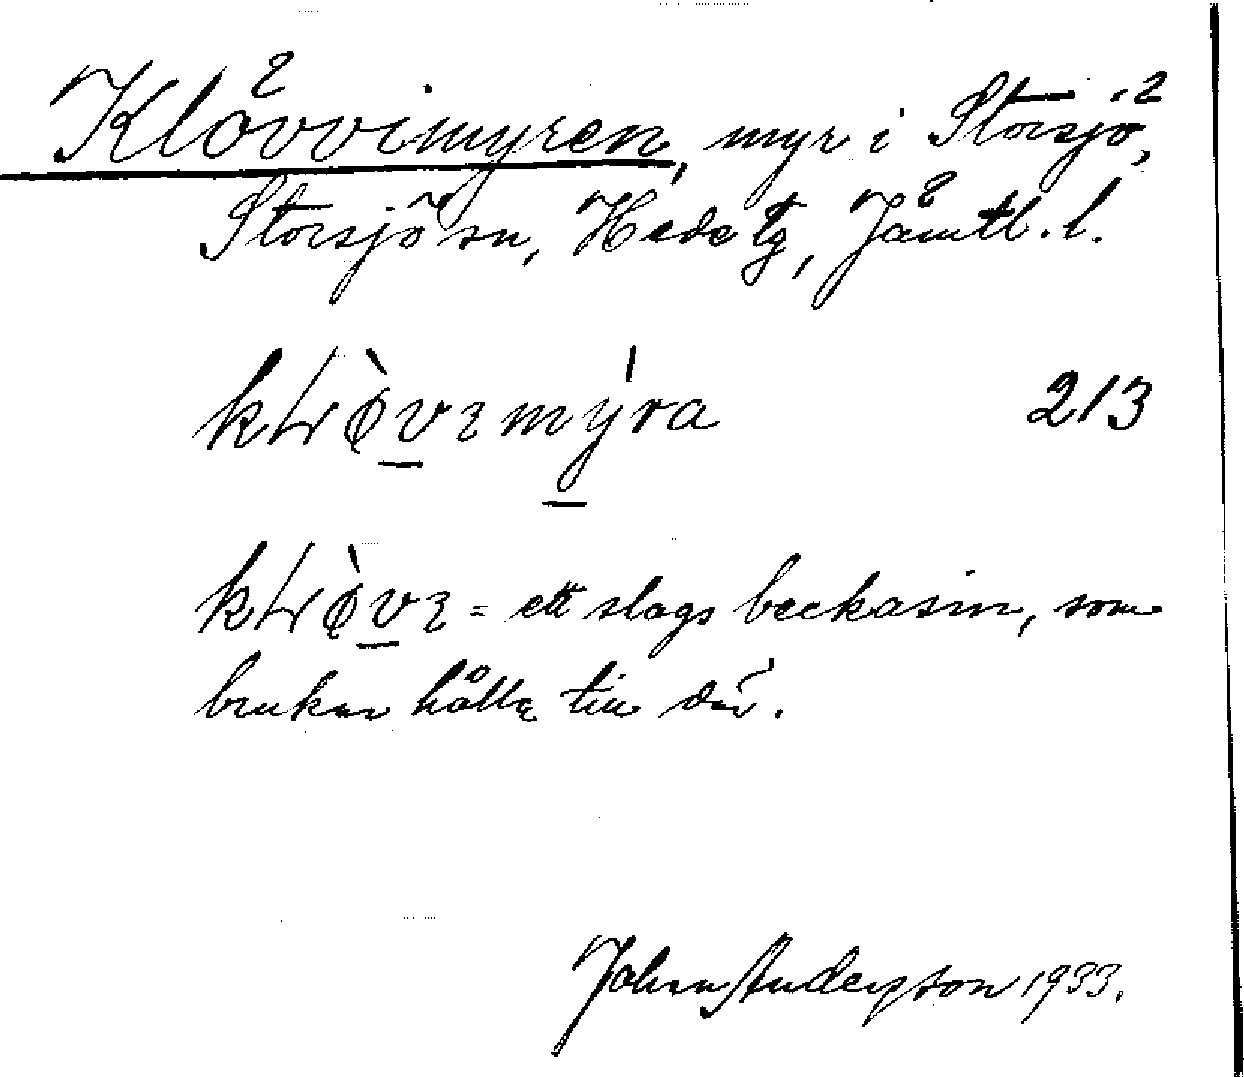 Klövvimyren, myr i Storsjö,
Storsjö sn, Hede tg, Jämtl. l.
213
= ett slags beckasin, som
brukar hålla till där.
John Andersson 1933.